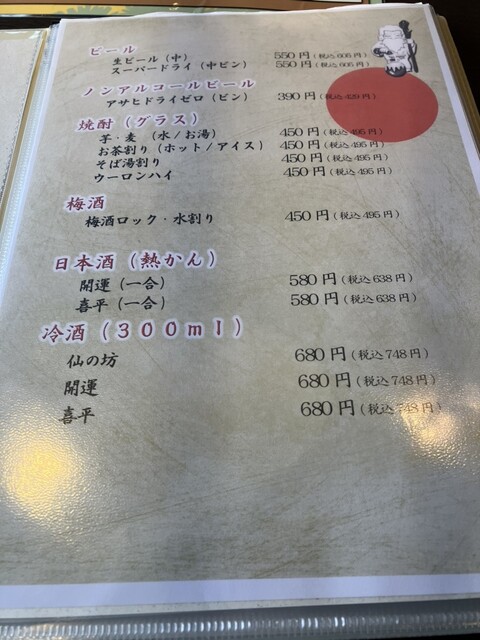 ビール
生ビール（中） 550円（税込605円）
スーパードライ（中ビン） 550円（税込605円）
ノンアルコールビール
アサヒドライゼロ（ビン） 390円（税込429円）
焼酎（グラス）
芋・麦　（水/お湯） 450円（税込495円）
お茶割り（ホット/アイス） 450円（税込495円）
そば湯割り 450円（税込495円）
ウーロンハイ 450円（税込495円）
梅酒
梅酒ロック・水割り 450円（税込495円）
日本酒（熱かん）
開運（一合） 580円（税込638円）
喜平（一合） 580円（税込638円）
冷酒（300ml）
仙の坊 680円（税込748円）
開運 680円（税込748円）
喜平 680円（税込748円）